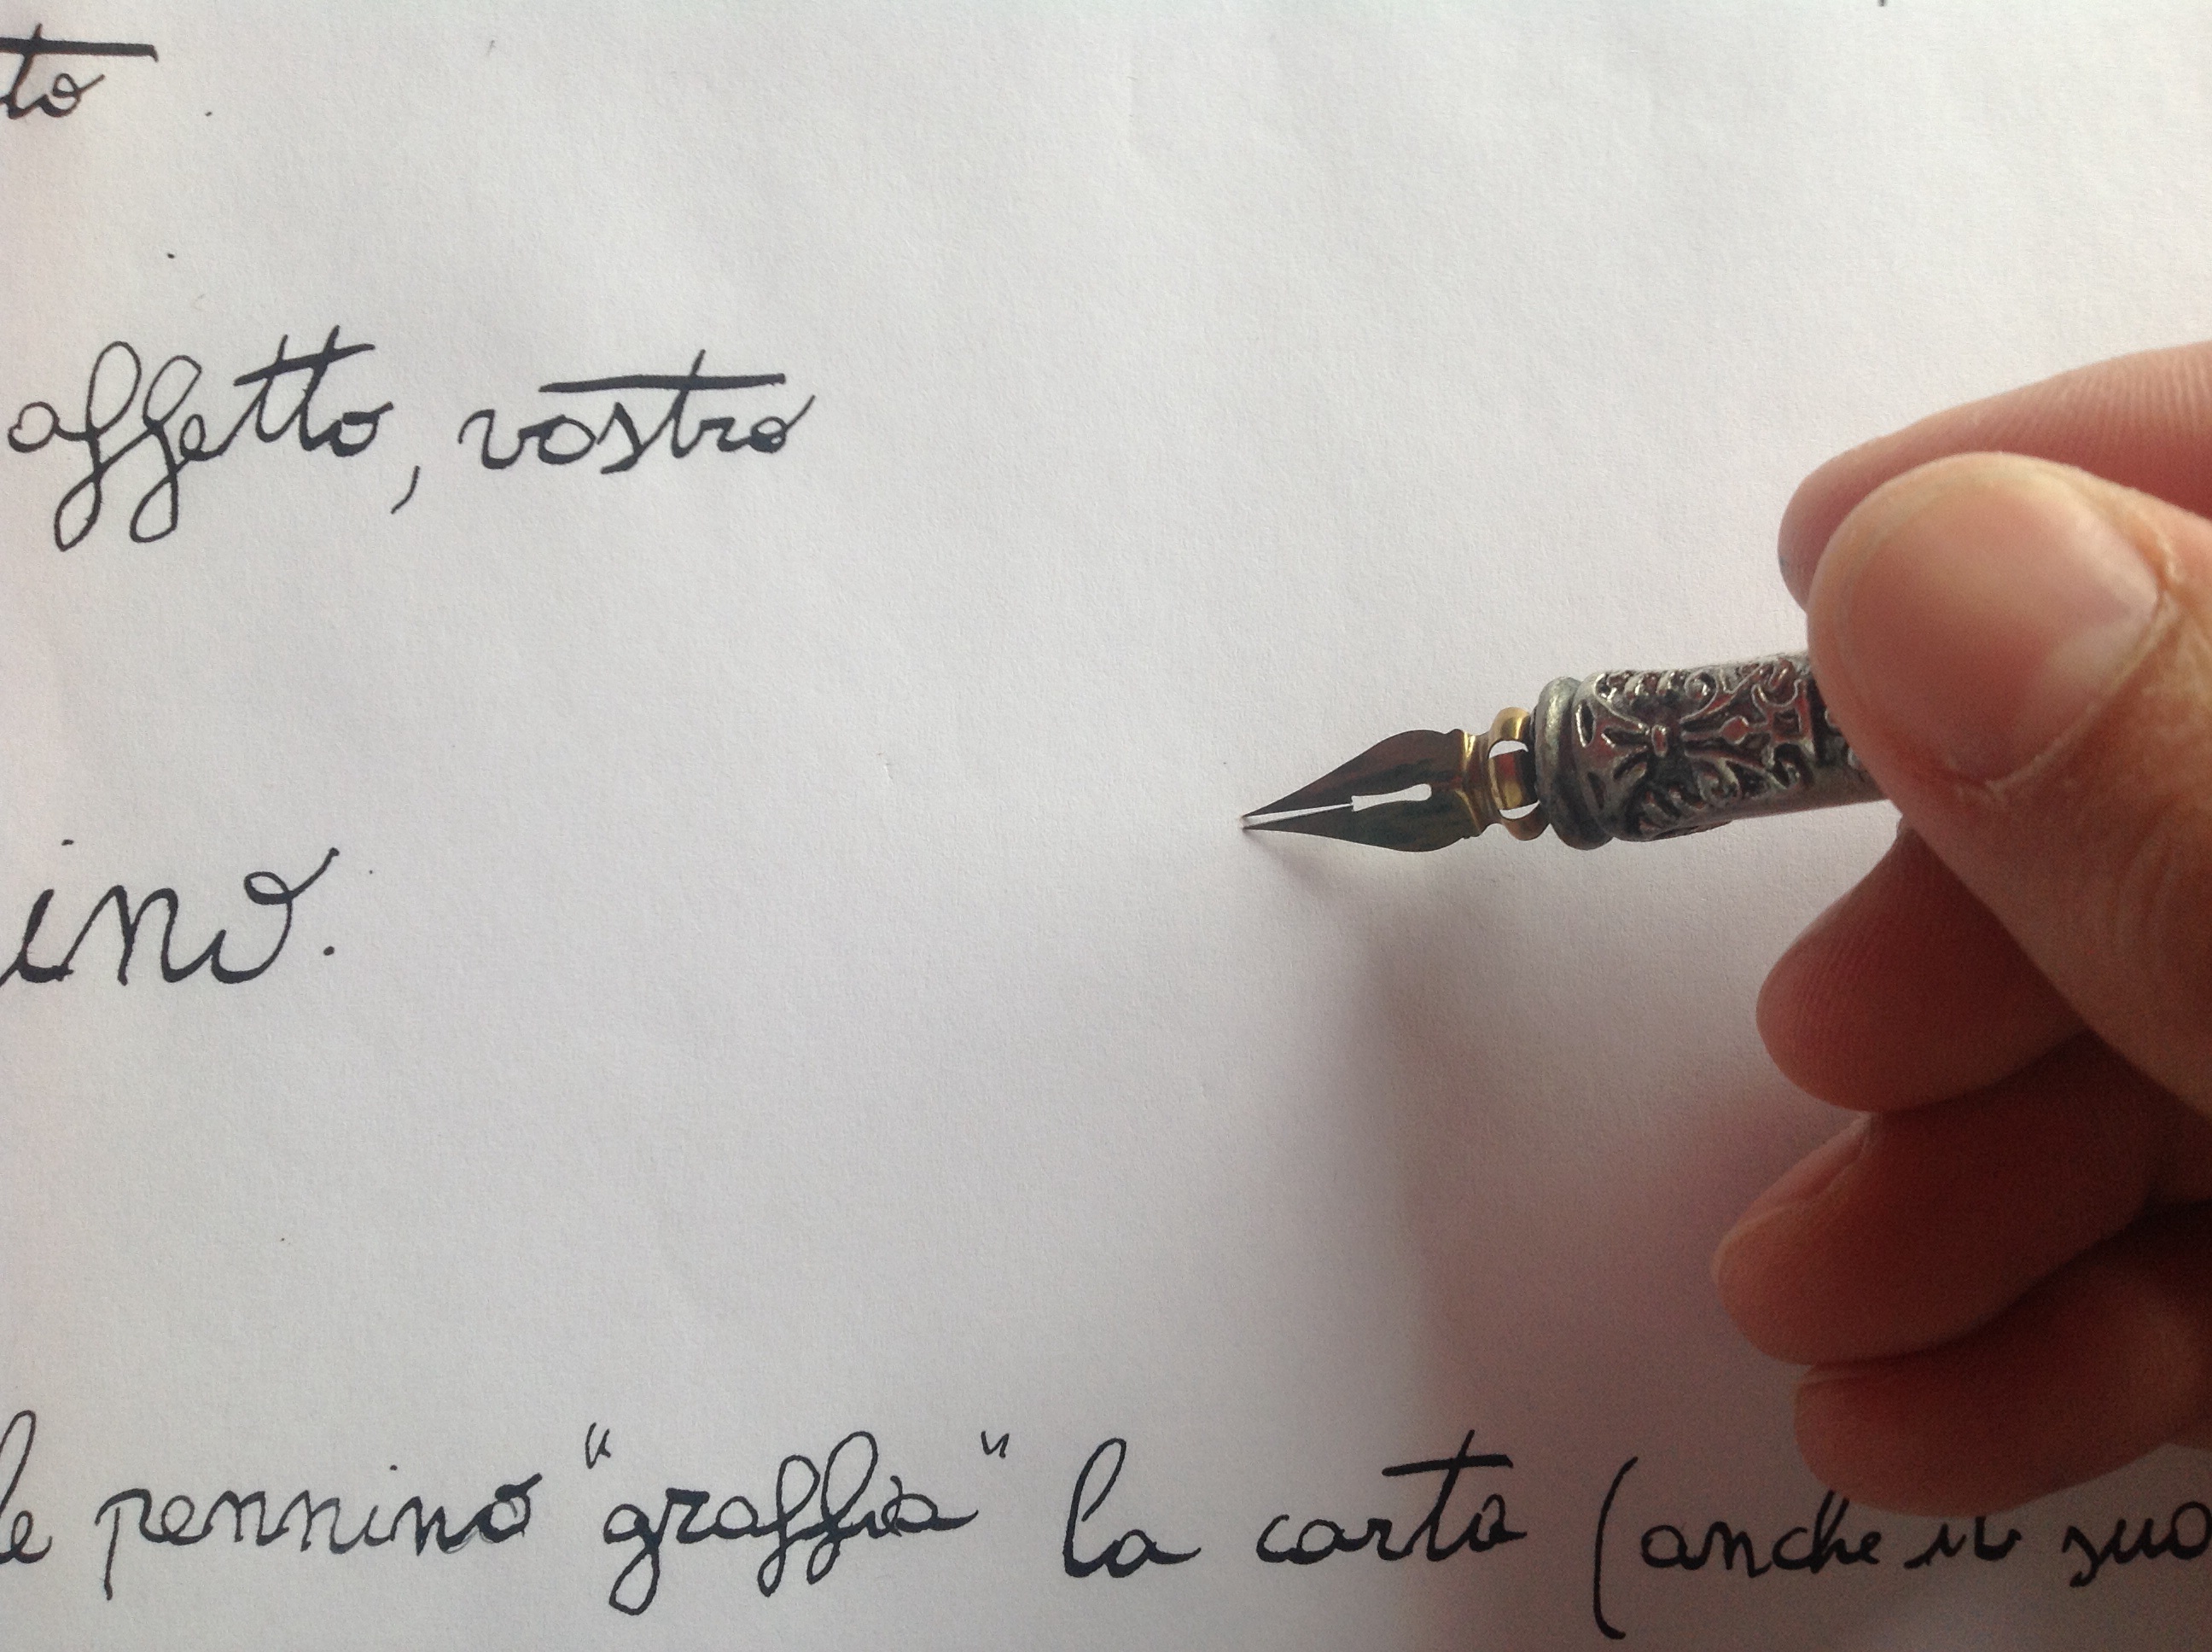 to
affetto, vostro
ino.
le pennino "graffia" la carta (anche il suo